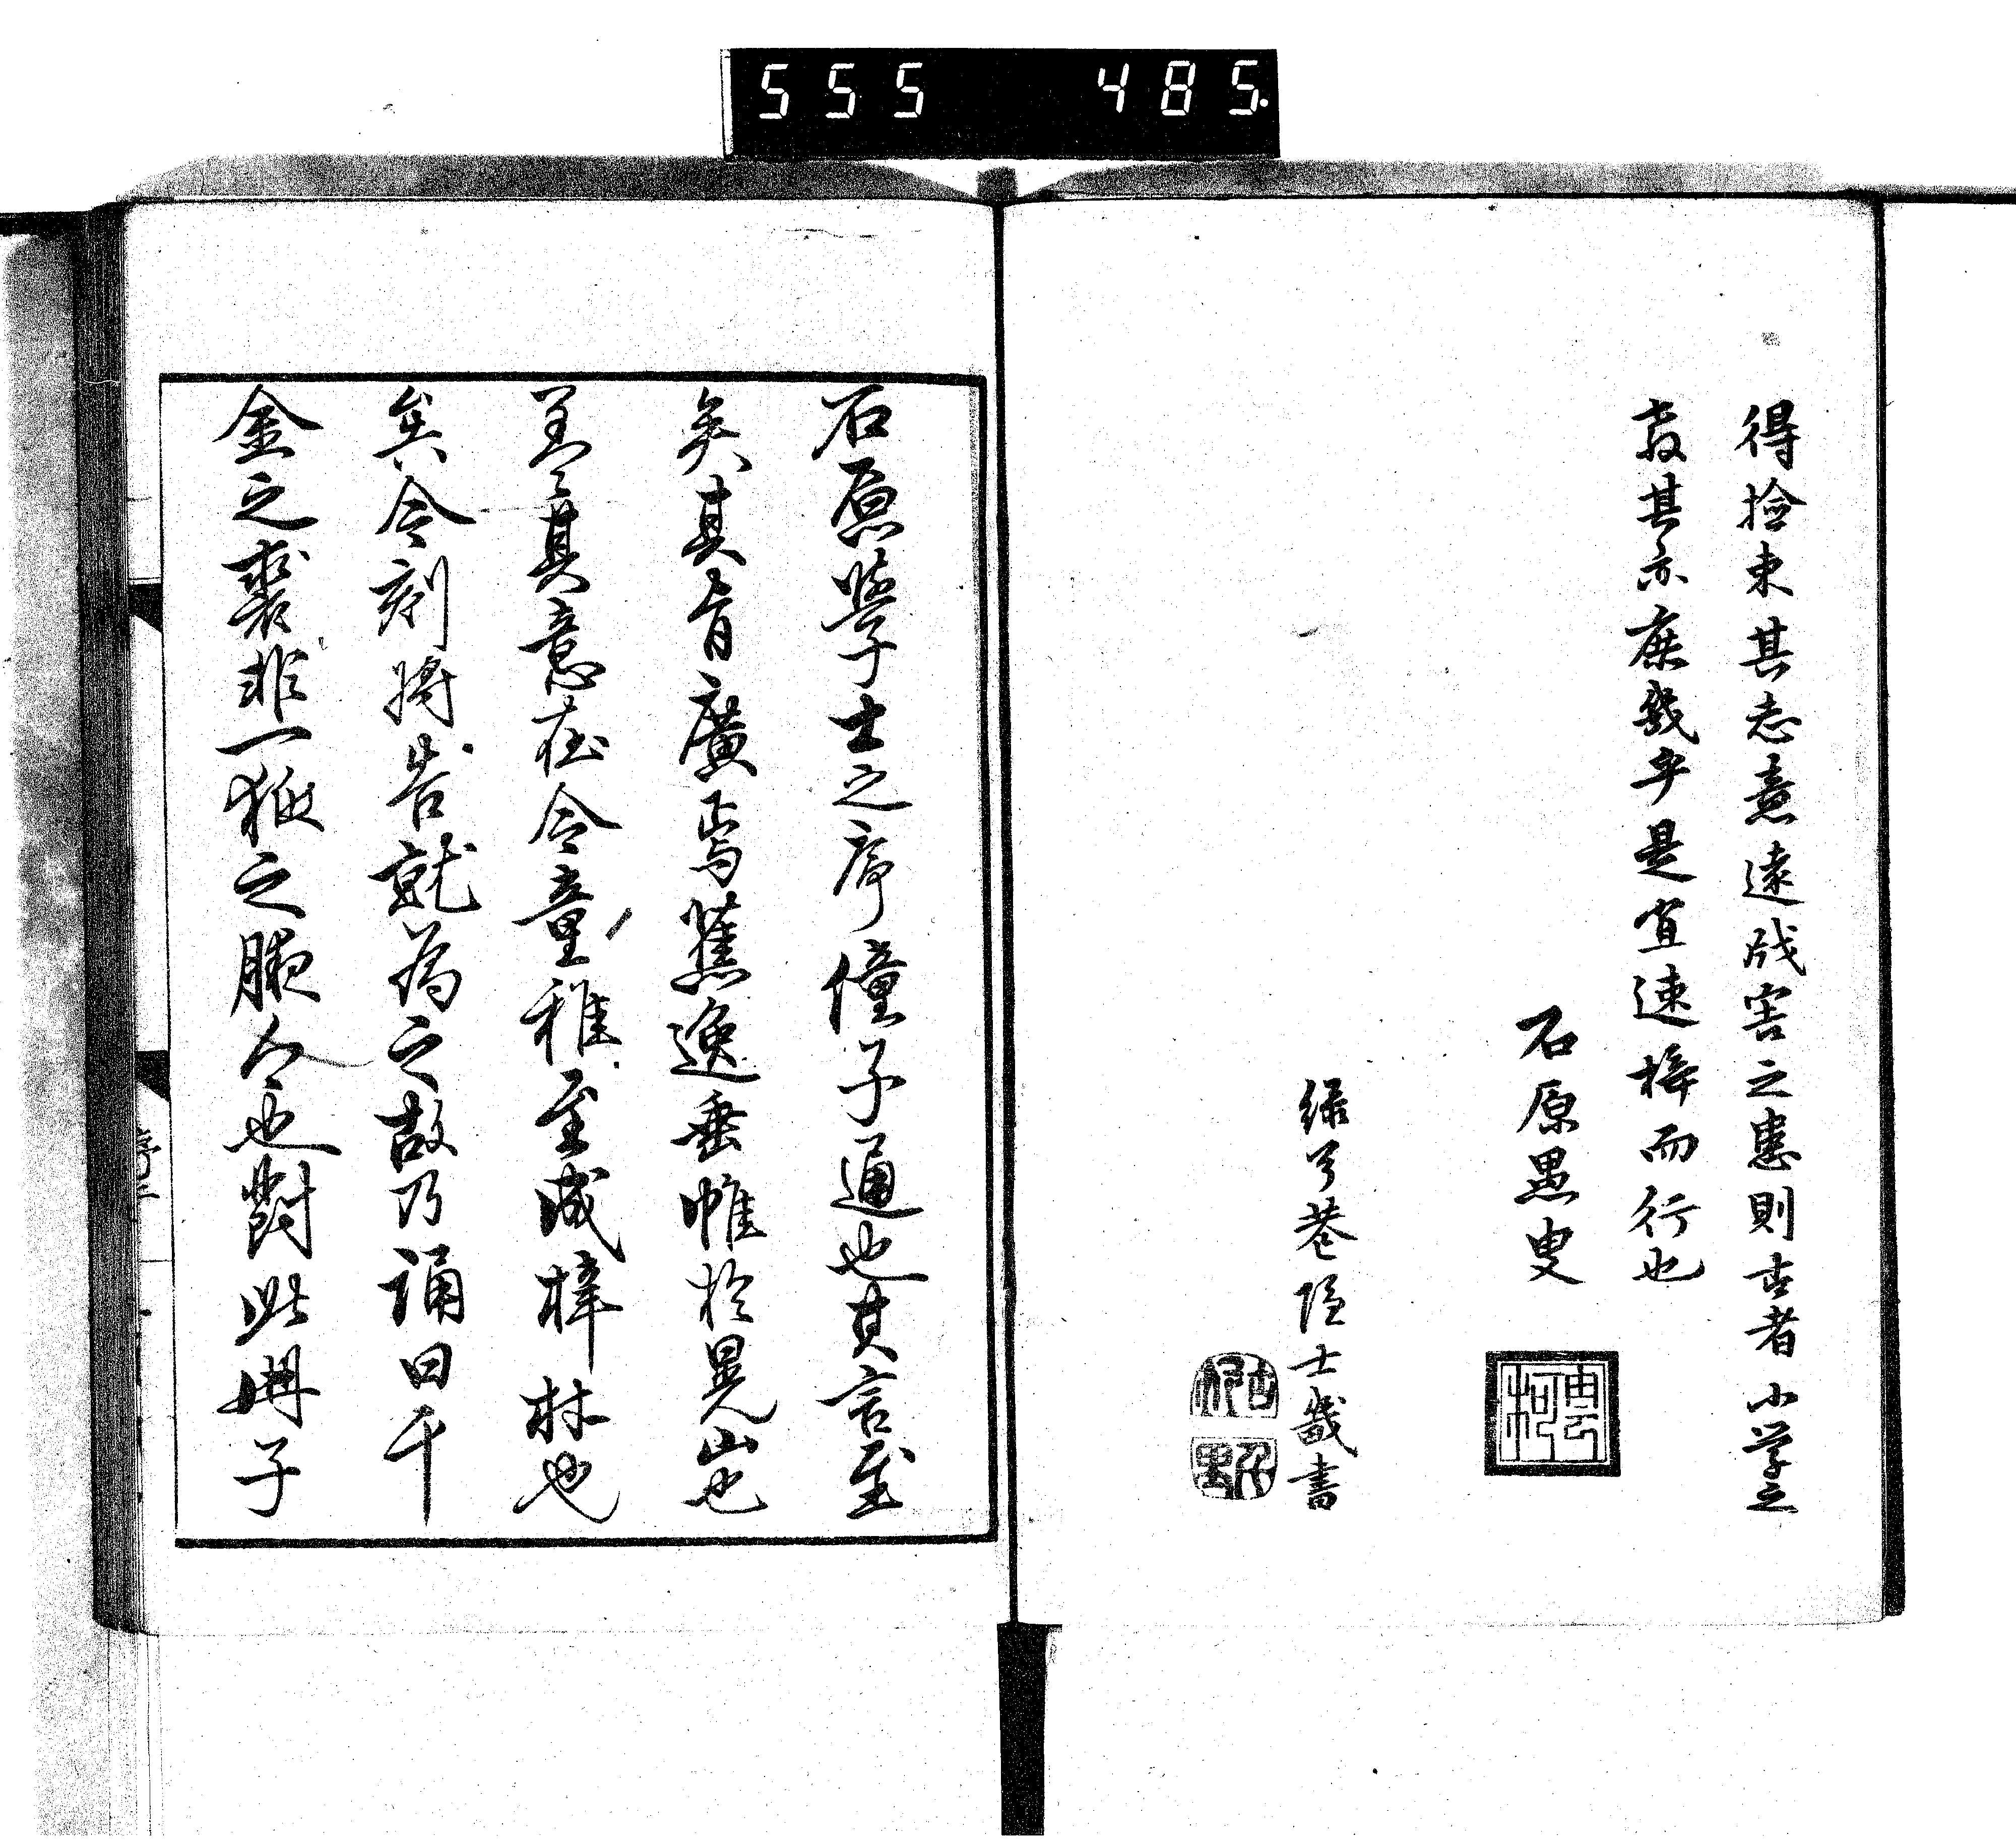 555 485.
得撿束其志意遠戕害之患則古者小学之
教其亦庶幾乎是宜速梓而行也
石原愚叟
緑兮巷隠士畿書
石原學士之序僮子通也其言至
矣其旨廣焉蕉逸垂帷於晃山也
盖其意在令童稚至成梓材也
矣令刻將告就為之故乃誦曰千
金之裘非一狐之腋今也對此冊子